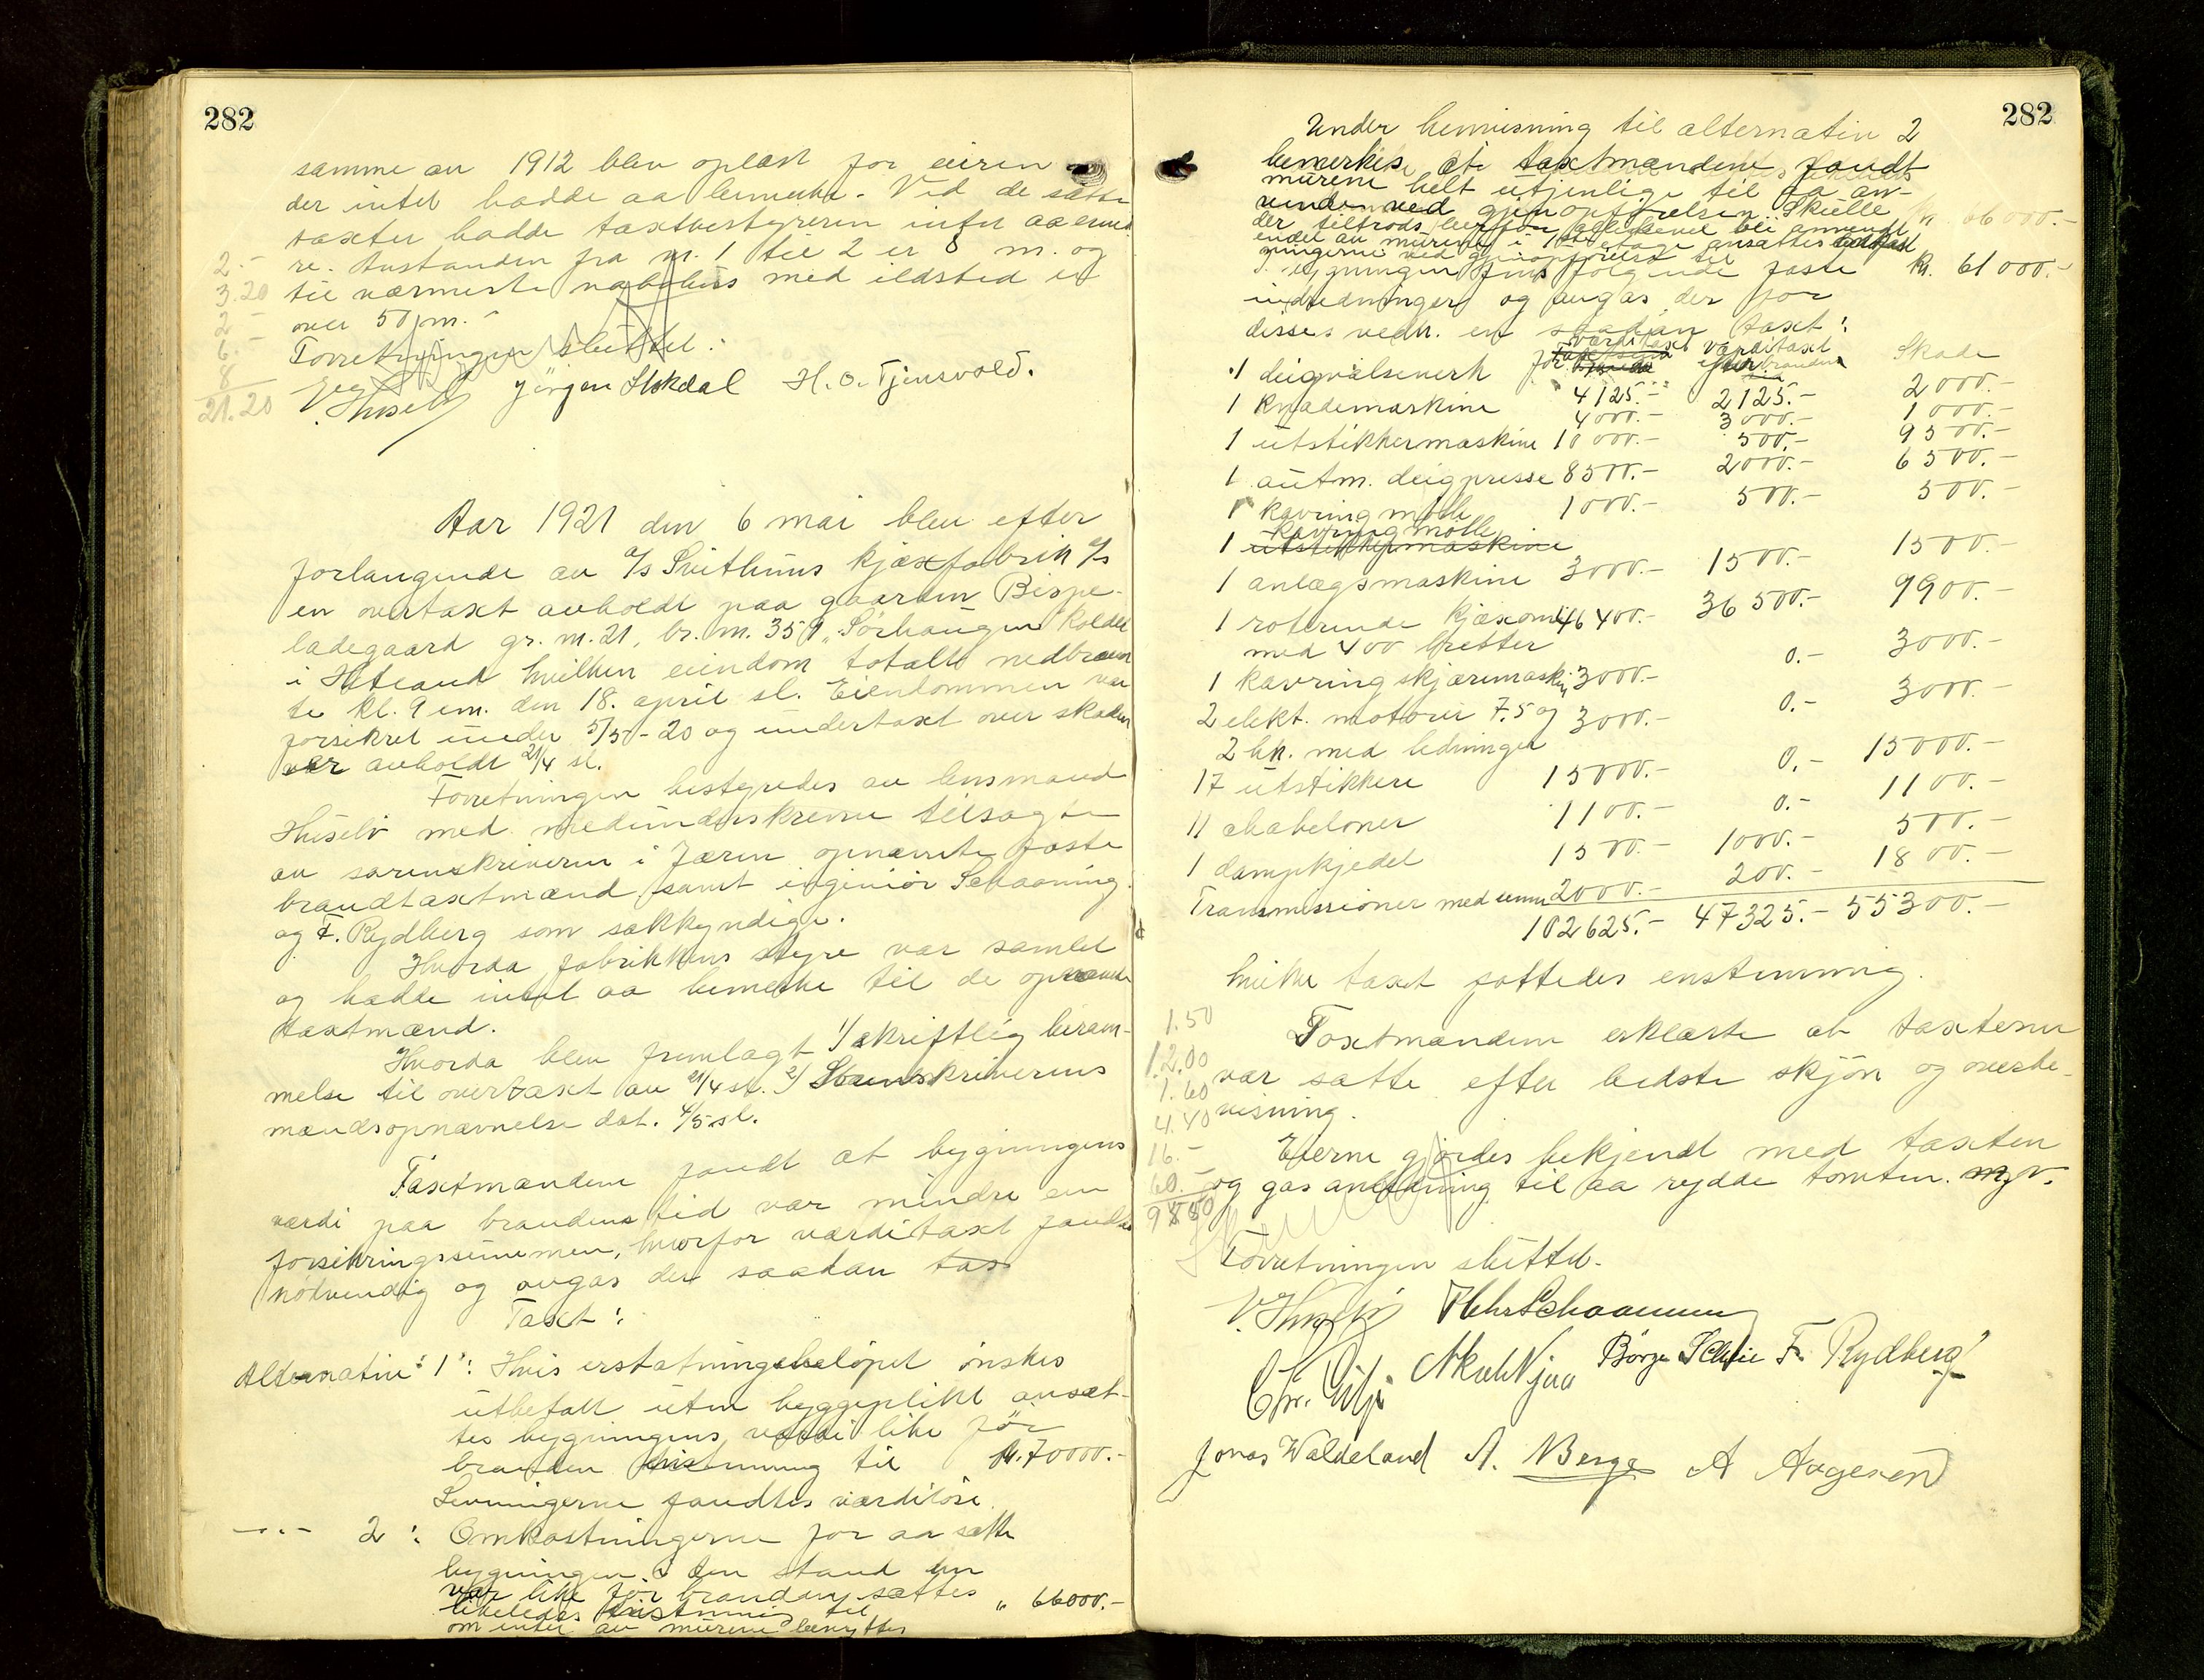 282
samme av 1912 blev oplæst for eieren
der intet hadde aa bemerke. Ved de satte
taxter hadde taxtbestyreren intet aa erind
re. Avstanden fra nr. 1 til 2 er 8 m. og
til nærmeste nabohus med ildsted er
over 50 m.
Forretningen sluttet.
V. Huselv Jörgen Stokdal H. O. Tjensvold.
2.-
3.20
2.-
6.-
8
21.20
Aar 1921 den 6 mai blev efter
forlangende av A/s Svithuns kjæxfabrik A/s
en overtaxt avholdt paa gaarden Bispe-
ladegaard gr. nr. 21, br. nr. 359 "Sörhaugen" kaldet
i Hetland hvilken eiendom totalt nedbræn
te kl. 9 em. den 18. april sl. Eiendommen var
forsikret under 5/5-20 og undertaxt over skaden
var avholdt 21/4 sl.
Forretningen bestyredes av lensmand
Huselv med medunderskrevne tilsagte
av sorenskriveren i Jæren opnævnte faste
brandtaxtmænd samt ingeniör Schaaning
og F. Rydberg som sakkyndige.
Hvorda fabrikkens styre var samlet
og hadde intet aa bemerke til de opnævnte
taxtmænd.
Hvorda blev fremlagt 1/ skriftlig beram-
melse til overtaxt av 21/4 sl. 2/ Sorenskriverens
mændsopnævnelse dat. 4/5 sl.
Taxtmændene fandt at bygningens
værdi paa brandens tid var mindre en
forsikringssummen, hvorfor værditaxt fandtes
nödvendig og avgas der saadan
Taxt:
Alternativ 1: Hvis erstatningsbelöpet önskes
utbetalt uten byggeplikt ansæt-
tes bygningens værdi like för
branden enstemmig til kr. 70000.-
Levningerne fandtes værdilöse.
-"- 2: Omkostningerne for aa sætte
bygningen i den stand den
var like för branden sættes
likeledes enstemmig til " 66000.-
om intet av murene benyttes
282
Under henvisning til alternativ 2
bemerkes at taxtmændene fandt
murene helt utjenlige til aa an-
vendes ved gjenopförelsen. Skulle
der tiltrods herfor allikevel bli anvendt
endel av murene i 1ste etage ansættes
ningerne ved gjenopförelse til kr. 61000.-
I bygningen fins fölgende faste
indredninger og avgas der for
disses vedk. en saadan taxt:
værditaxt för værditaxt efter branden Skade
1 deigvalseverk 4125.- 2125.- 2000.-
1 knademaskine 4000.- 3000.- 1000.-
1 utstikkermaskine 10000.- 500.- 9500.-
1 autm. deigpresse 8500.- 2000.- 6500.-
1 kavringmölle 1000.- 500.- 500.-
kavringmölle
1 utstikkermaskine
1 anlægsmaskine 3000.- 1500.- 1500.-
1 roterende kjæxovn 46400.- 36500.- 9900.-
med 400 bretter
1 kavringskjæremaskin 3000.- 0.- 3000.-
2 elekt. motorer 7,5 og 3000.- 0.- 3000.-
2 hk. med ledninger
17 utstikkere 15000.- 0.- 15000.-
11 chabeloner 1100.- 0.- 1100.-
1 dampkjedel 1500.- 1000.- 500.-
Transmissioner med 2000.- 200.- 1800.-
102625.- 47325.- 55300.-
hvilke taxt fattedes enstemmig.
Taxtmændene erklærte at taxterne
var satte efter bedste skjön og overbe-
visning.
Eierne gjordes bekjendt med taxten
og gas anledning til aa rydde tomten. m. v.
1.50
12.00
1.60
4.40
16.-
60.-
Forretningen sluttet.
V. Huselv Schaanning
Chr. Lilje Börge Schie Fr. Rydberg
Jonas Waldeland A. Berge A Aagesen